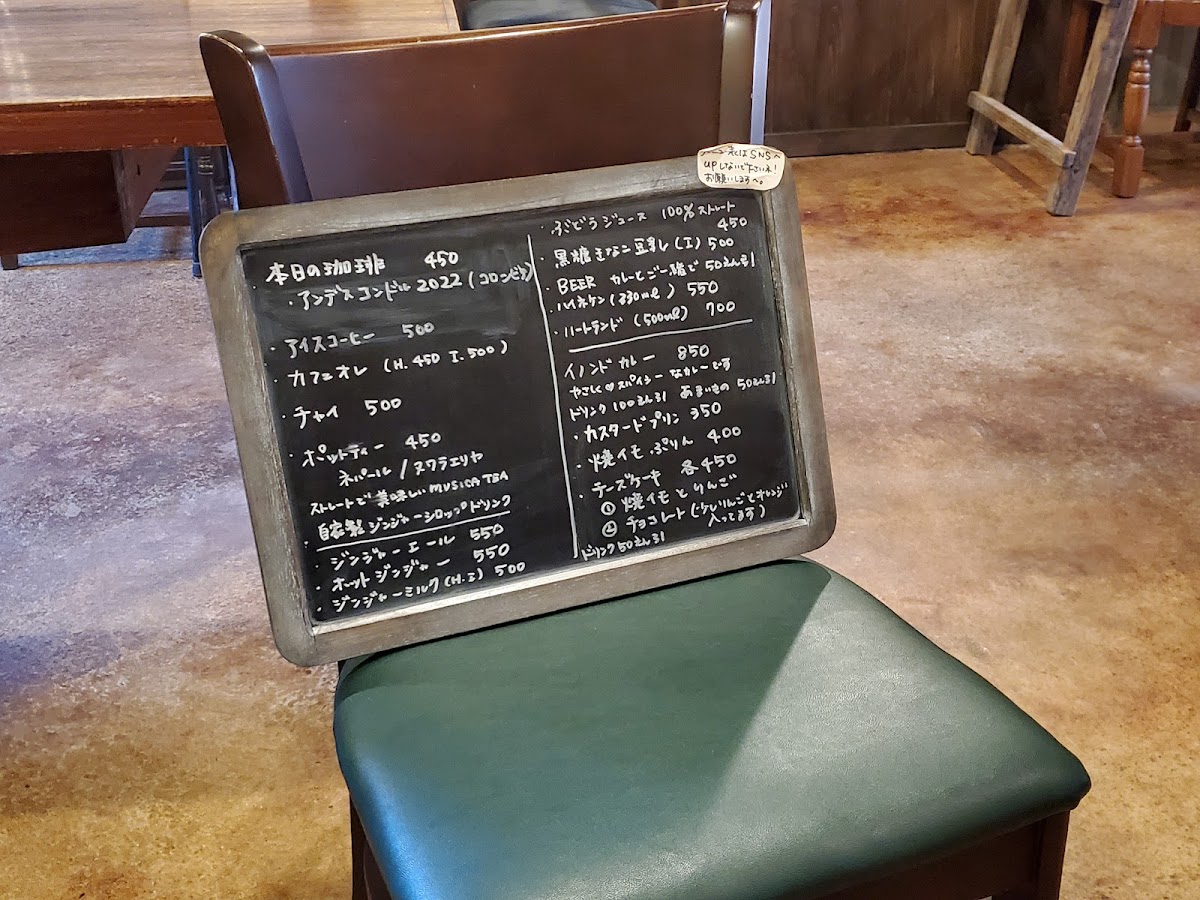 本日の珈琲 450
・アンデスコンドル2022(コロンビア)
・アイスコーヒー 500
・カフェオレ (H.450 I.500)
・チャイ 500
・ポットティー 450
ネパール/ヌワラエリヤ
ストレートで美味しいMUSICA TEA
・自家製ジンジャーシロップドリンク
・ジンジャーエール 550
・ホットジンジャー 550
・ジンジャーミルク(H.I) 500
・ぶどうジュース 100%ストレート
450
・黒糖きなこ豆乳(I) 500
・BEER カレーとご一緒で50えん引
・ハイネケン(330ml) 550
・ハートランド (500ml) 700
イノンドカレー 850
やさしく♡スパイシーなカレーです
ドリンク100えん引 あまいもの50えん引
・カスタードプリン 350
・焼イモぷりん 400
・チーズケーキ 各450
① 焼イモとりんご
② チョコレート(いりんごとオレンジ
入ってます)
ドリンク50えん引
はSNSへ
UPしないで下さいネ!
お願いします。